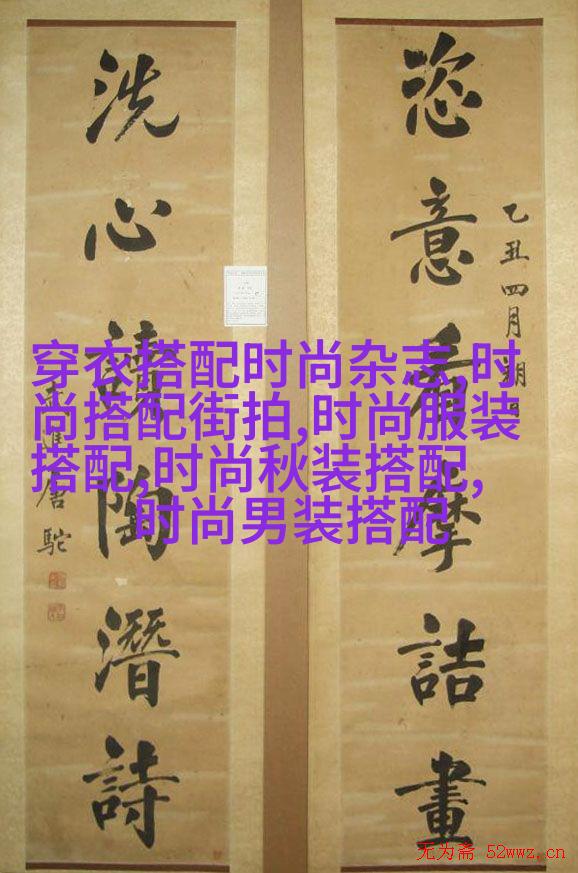 恣意看摩詰畫
乙丑四月朔日
洗心讀陶潛詩
武進唐駝
穿衣搭配时尚杂志,时
尚搭配街拍,时尚服装
搭配,时尚秋装搭配,
时尚男装搭配
无为斋 52wwz.cn